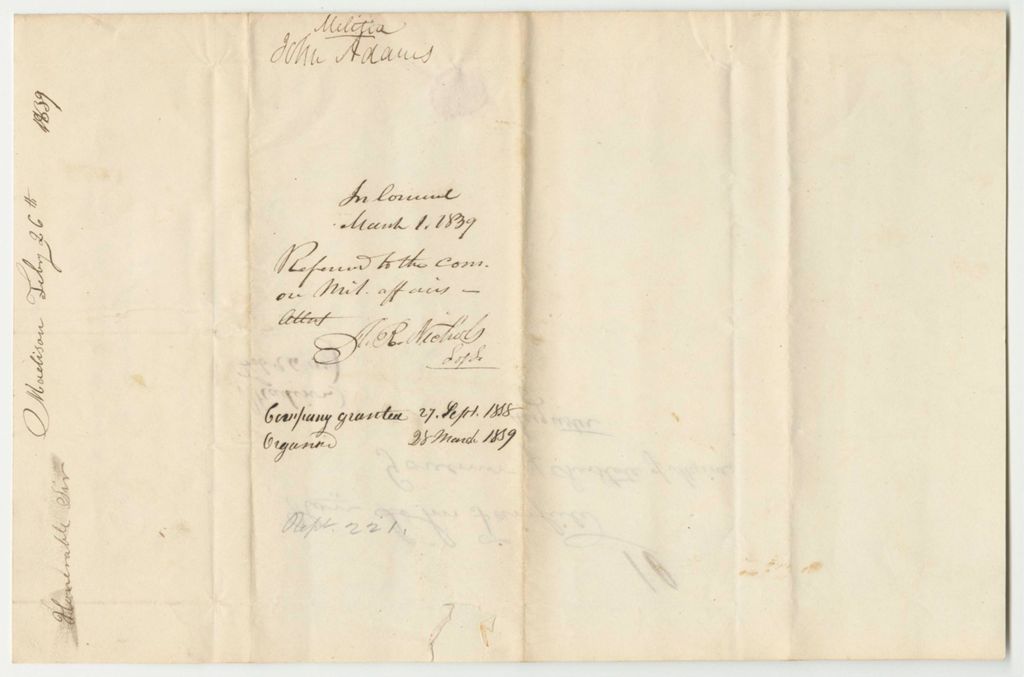 Militia
John Adams
In Council
March 1. 1839
Referred to the com.
on Mil. affairs –
Attest
A. R. Nichols
Company granted 27. Sept. 1838
Organised 28 March 1839
Rept. 221.
Madison Feby 26th 1839
Honorable Sir